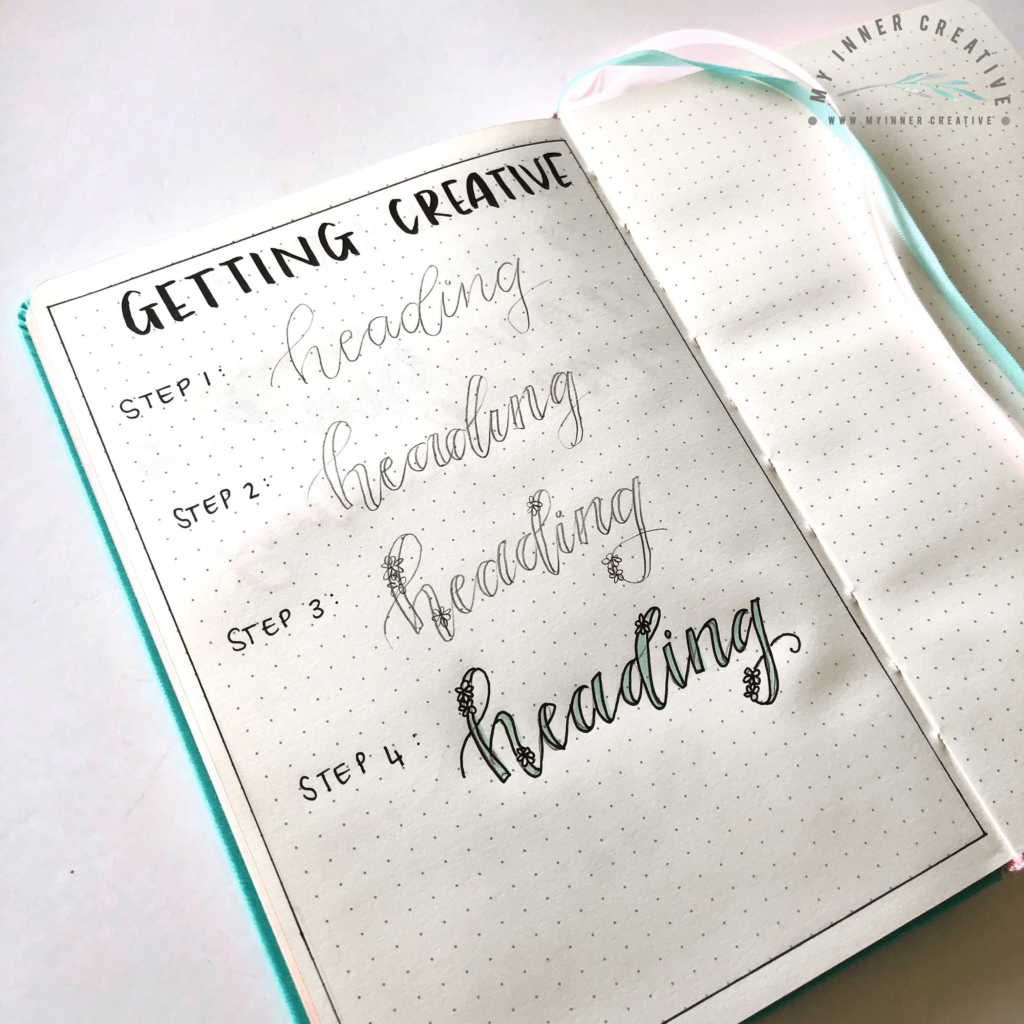 MY INNER CREATIVE
WWW.MYINNER.CREATIVE
GETTING CREATIVE
STEP 1: heading
STEP 2: heading
STEP 3: heading
STEP 4: heading